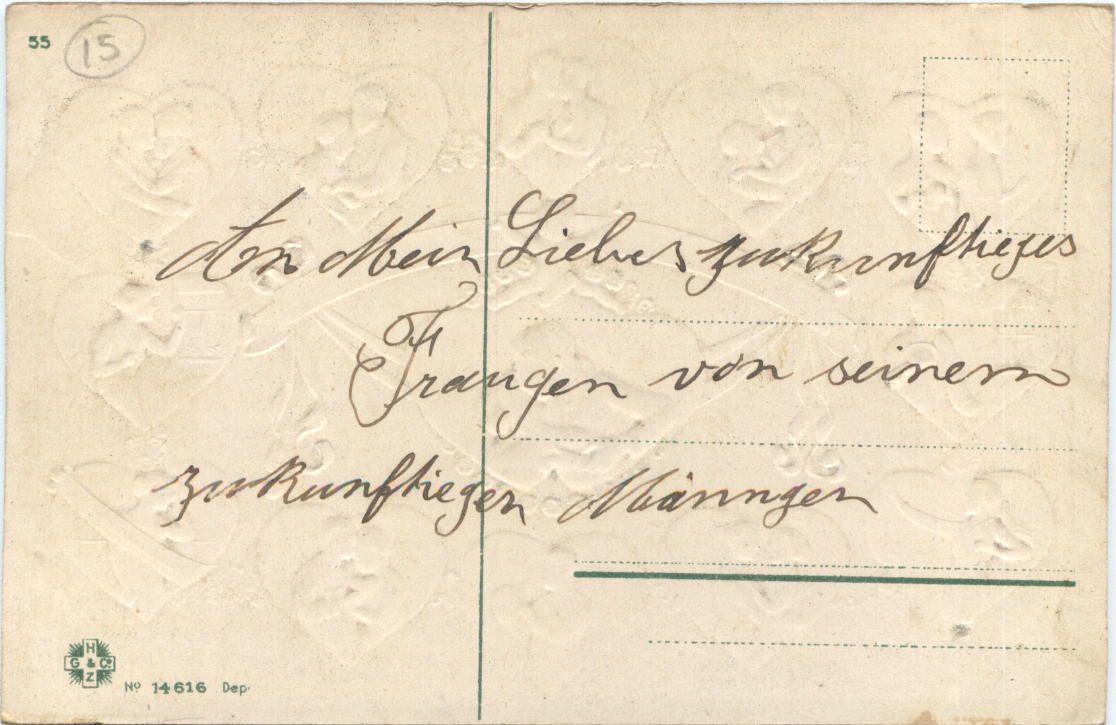 55
15
An Mein Liebes zukunftieges
Fraugen von seinem
zukunftiegen Männgen
H
G & Co
Z
No 14616 Dep.